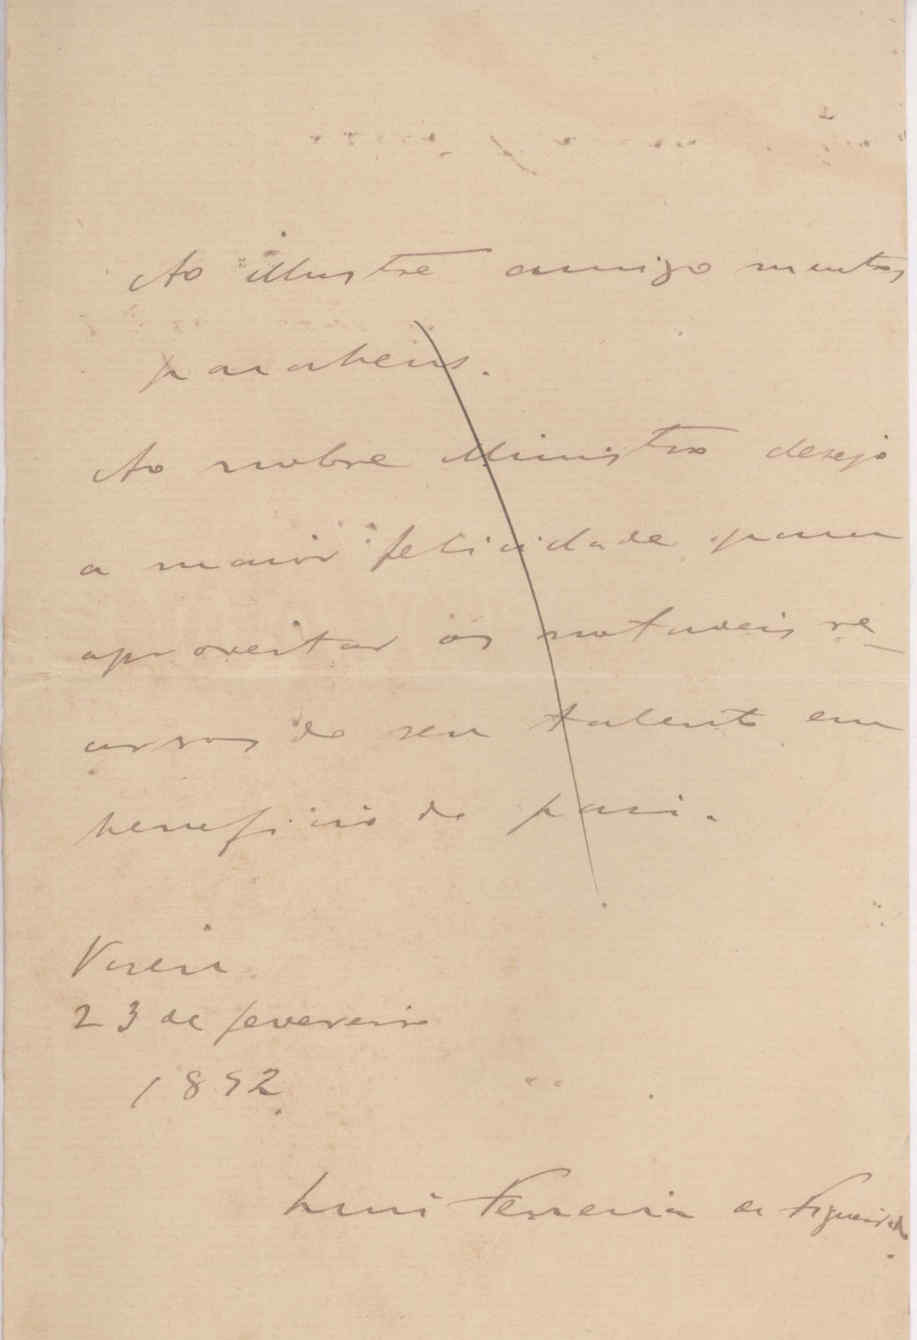 Ao illustre amigo muitos
parabens.
Ao nobre Ministro desejo
a maior felicidade para
aproveitar os notaveis re_
cursos do seu talento em
beneficio do paiz.
Vizeu
23 de fevereiro
1892
Luiz Ferreira de Figueiredo